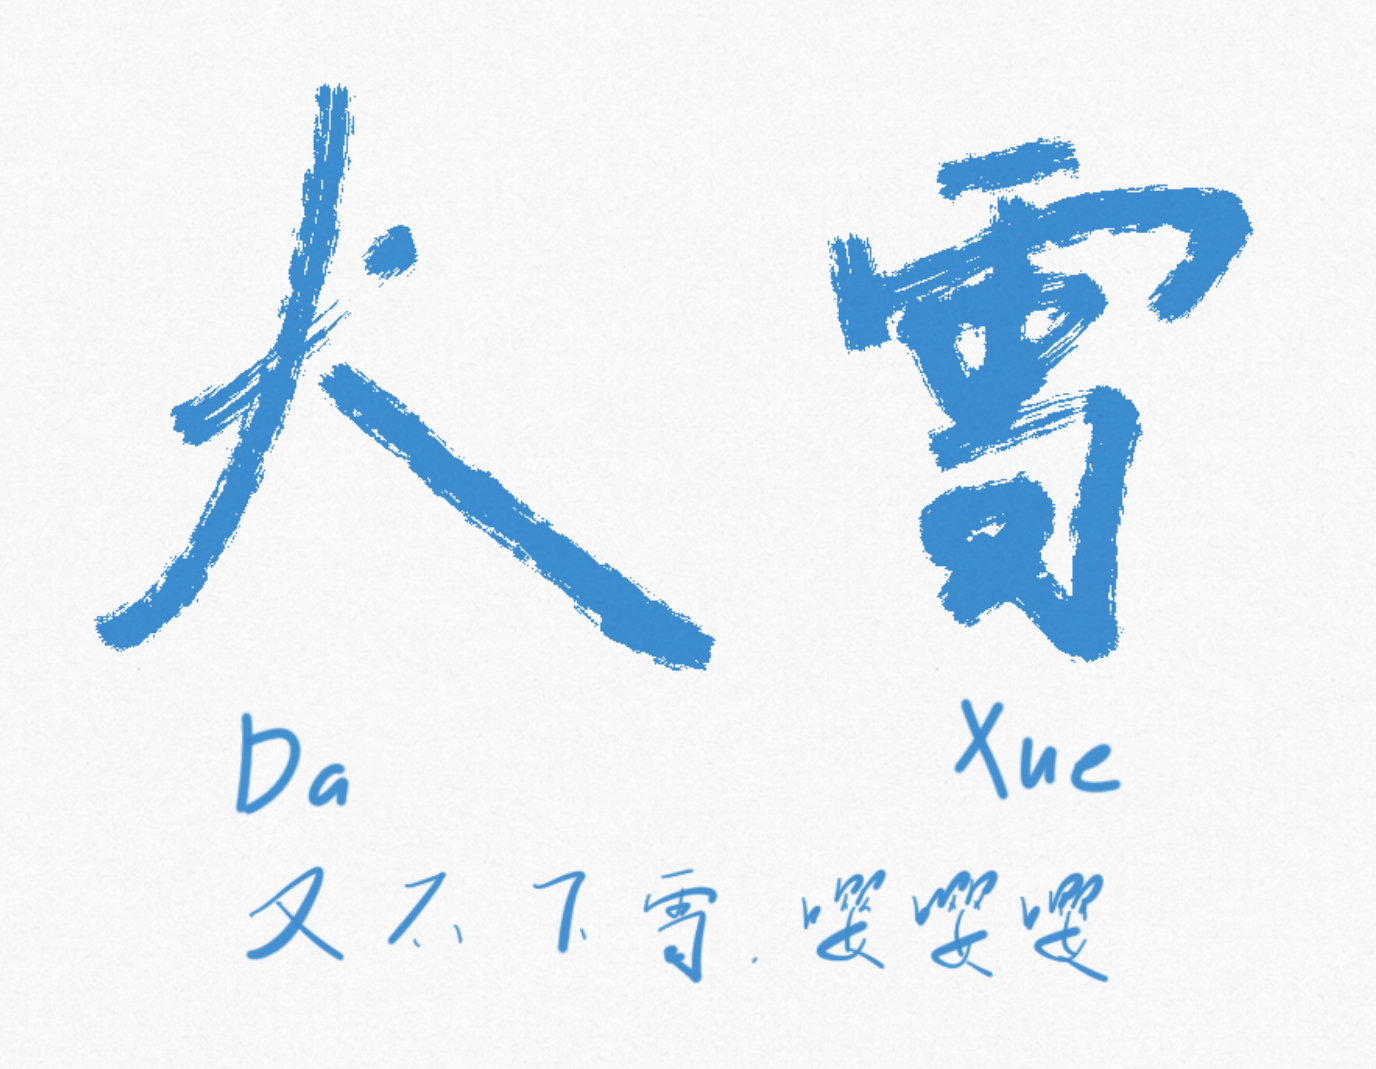 大雪
Da Xue
又不下雪.嘤嘤嘤